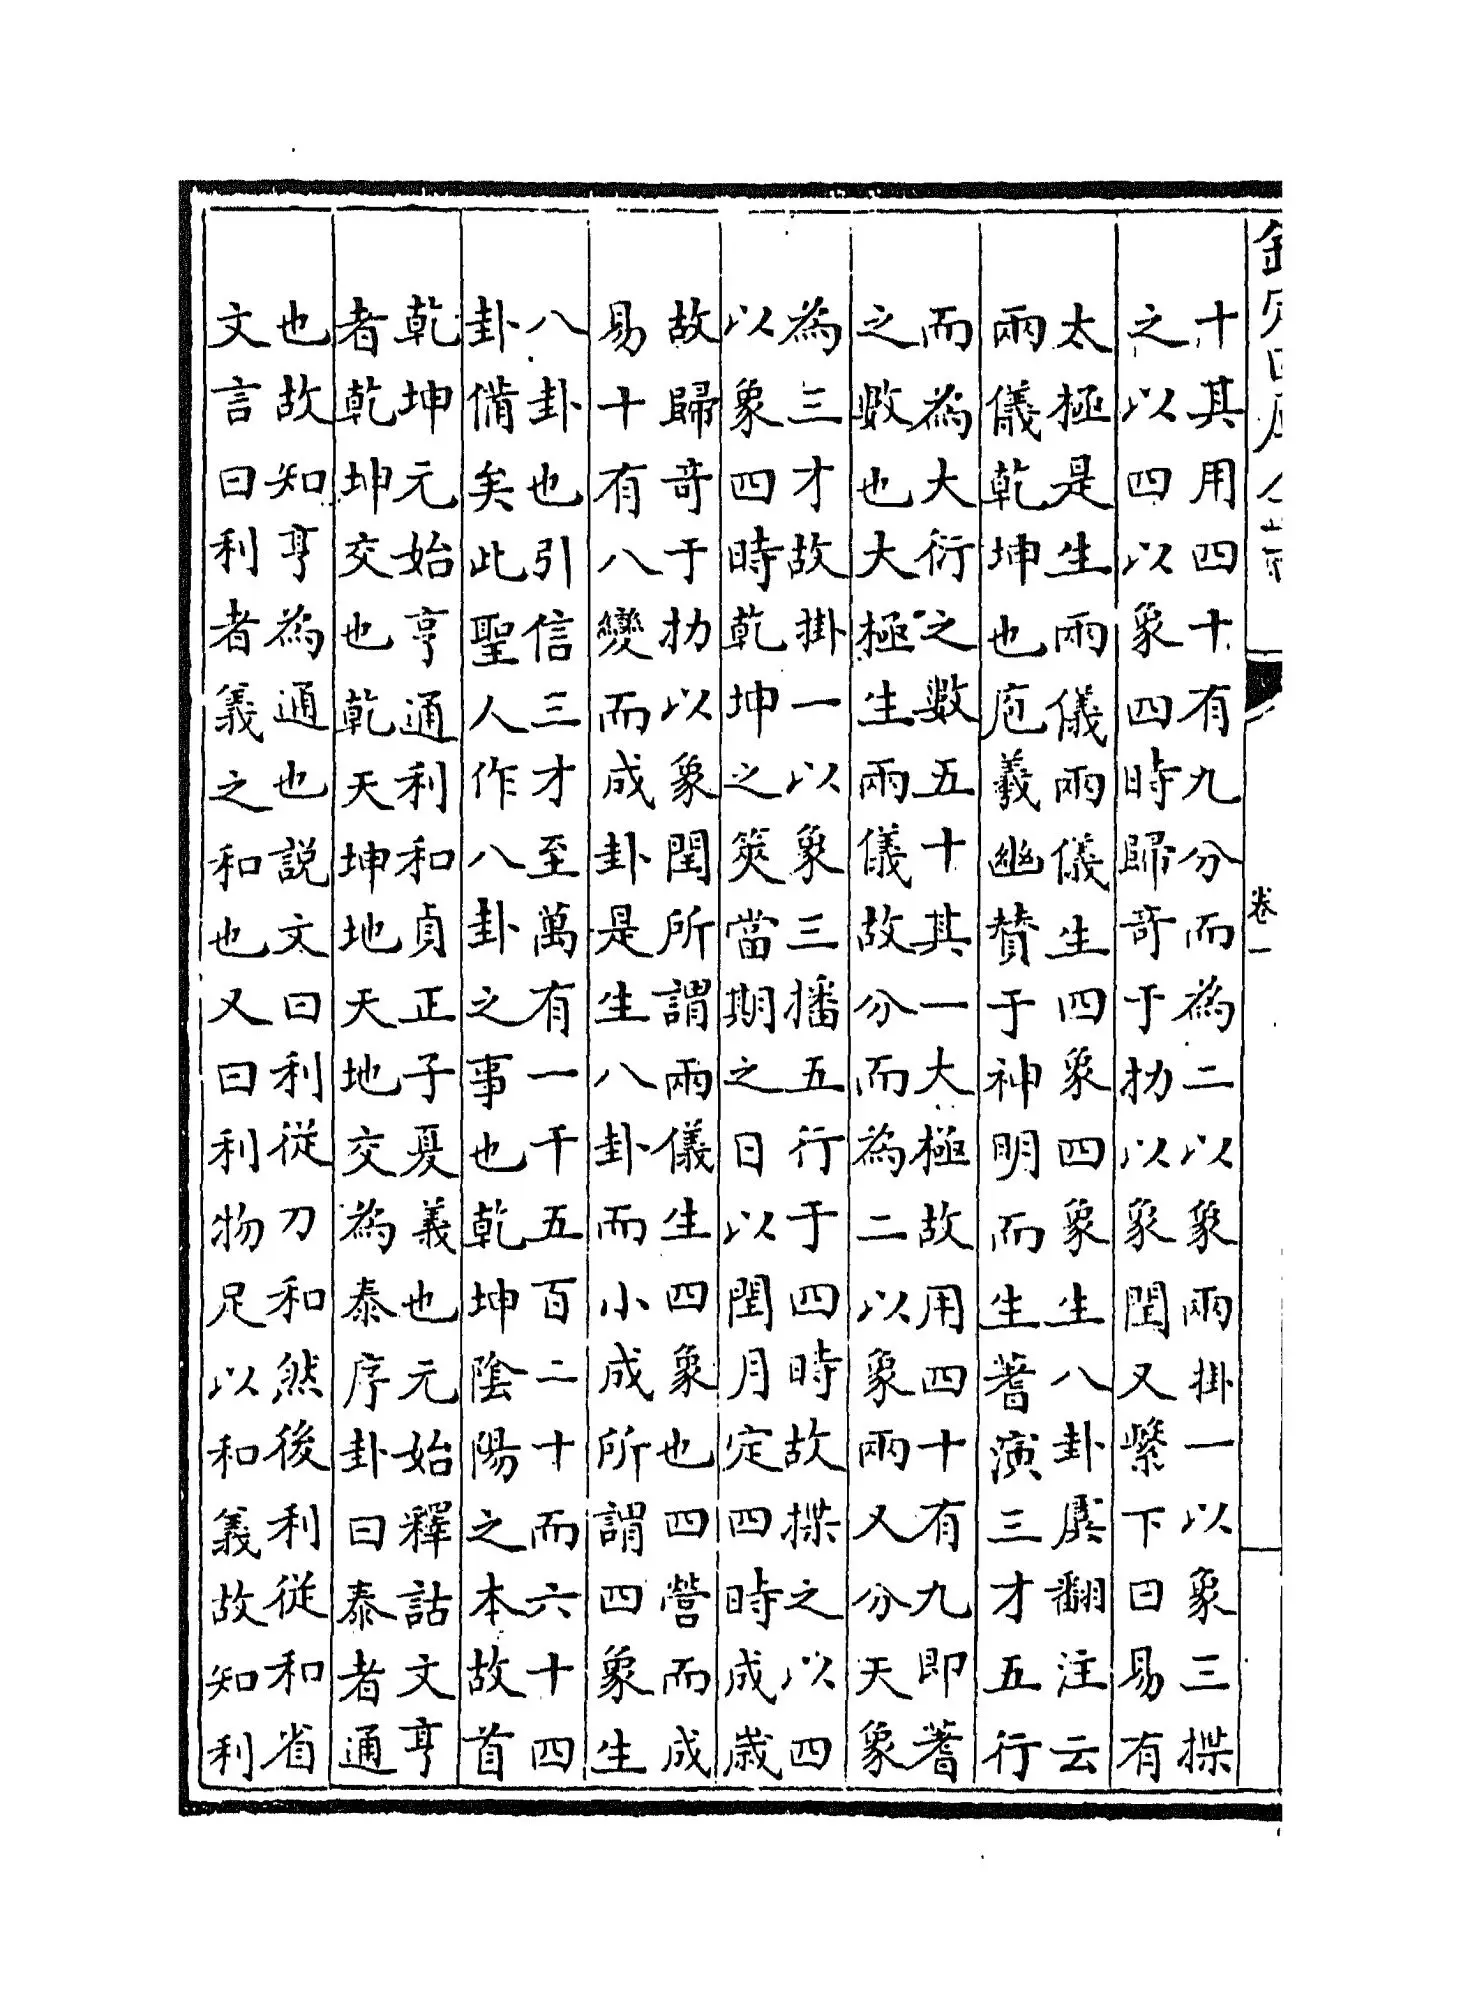 欽定四庫全書
卷一
十其用四十有九分而為二以象兩掛一以象三揲
之以四以象四時歸奇于扐以象閏又繫下曰易有
太極是生兩儀兩儀生四象四象生八卦虞翻注云
兩儀乾坤也庖羲幽賛于神明而生蓍演三才五行
而為大衍之數五十其一大極故用四十有九即蓍
之數也大極生兩儀故分而為二以象兩又分天象
為三才故掛一以象三播五行于四時故揲之以四
以象四時乾坤之筴當期之日以閏月定四時成歲
故歸奇于扐以象閏所謂兩儀生四象也四營而成
易十有八變而成卦是生八卦而小成所謂四象生
八卦也引信三才至萬有一千五百二十而六十四
卦備矣此聖人作八卦之事也乾坤陰陽之本故首
乾坤元始亨通利和貞正子夏義也元始釋詁文亨
者乾坤交也乾天坤地天地交為泰序卦曰泰者通
也故知亨為通也說文曰利從刀和然後利從和省
文言曰利者義之和也又曰利物足以和義故知利